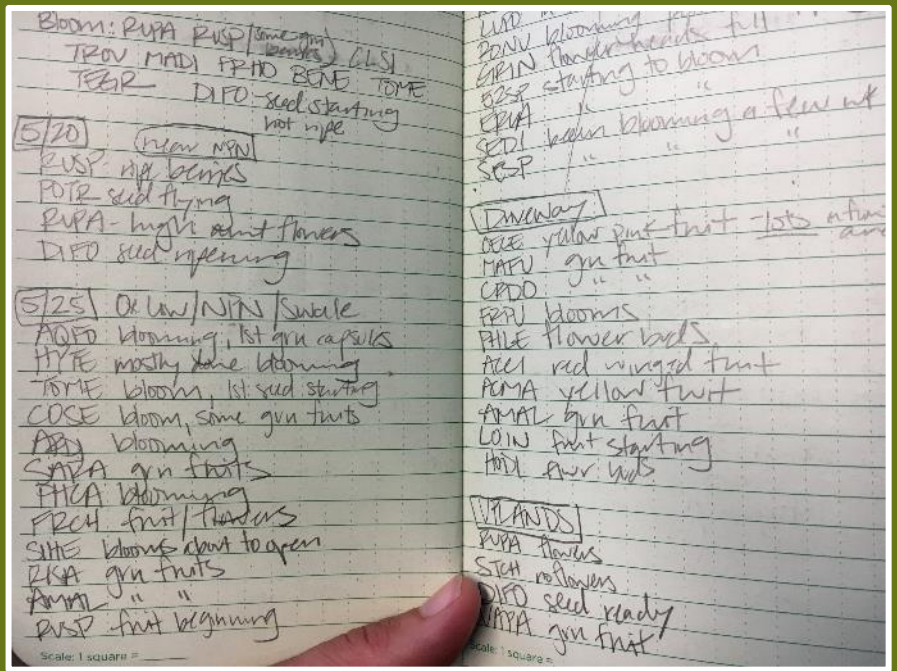 Bloom: RUPA RUSP (some grn berries) CLSI
TROV MADI FRHO BENE TOME
TEGR DIFO - seed starting
not ripe
5/20 near NPN
RUSP ripe berries
POTR seed flying
RUPA - flowers
DIFO seed ripening
5/25 Ox Low/NPN/Swale
AQFO blooming, 1st grn capsules
HYTE mostly done blooming
TOME bloom, 1st seed starting
COSE bloom, some grn fruits
blooming
SARA grn fruits
PHCA blooming
FRCH fruit/flowers
SIHE blooms about to open
RISA grn fruits
AMAL " "
RUSP fruit beginning
Scale: 1 square =
blooming
GRIN flowerheads full
starting to bloom
" "
SEDI been blooming a few wk
SESP " " "
Driveway
OECE yellow pink fruit - lots
MAFU grn fruit
CRDO " "
blooms
PHLE flower buds
ACCI red winged fruit
ACMA yellow fruit
AMAL grn fruit
LOIN fruit starting
HODI flwr buds
UPLANDS
RUPA flowers
STCH no flowers
DIFO seed ready
VAPA grn fruit
Scale: 1 square =